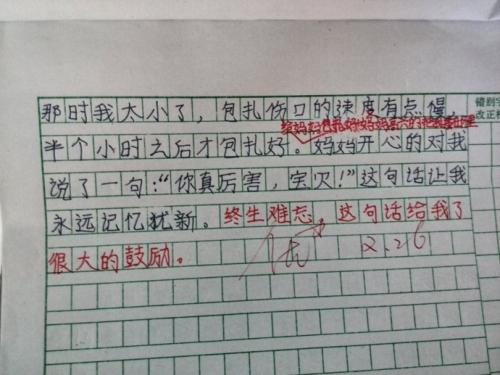 那时我太小了，包扎伤口的速度有点慢，
错别
改正
半个小时之后才包扎好。妈妈开心的对我
说了一句："你真厉害，宝贝！"这句话让我
永远记忆犹新。终生难忘，这句话给我了
很大的鼓励。
优 2.26